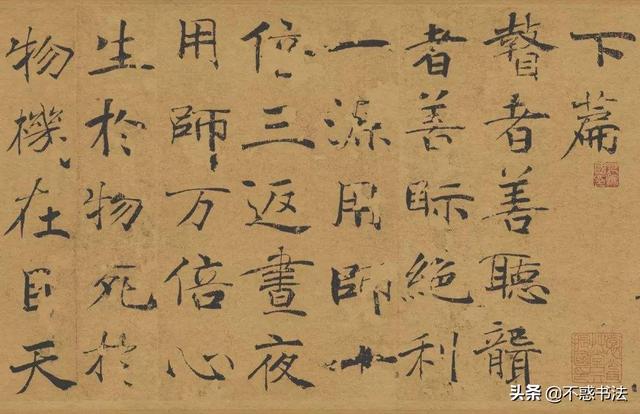 下篇
瞽者善聽聾
者善眎絶利
一源用師十
倍三返晝夜
用師万倍心
生於物死於
物機在目天
头条 @不惑书法